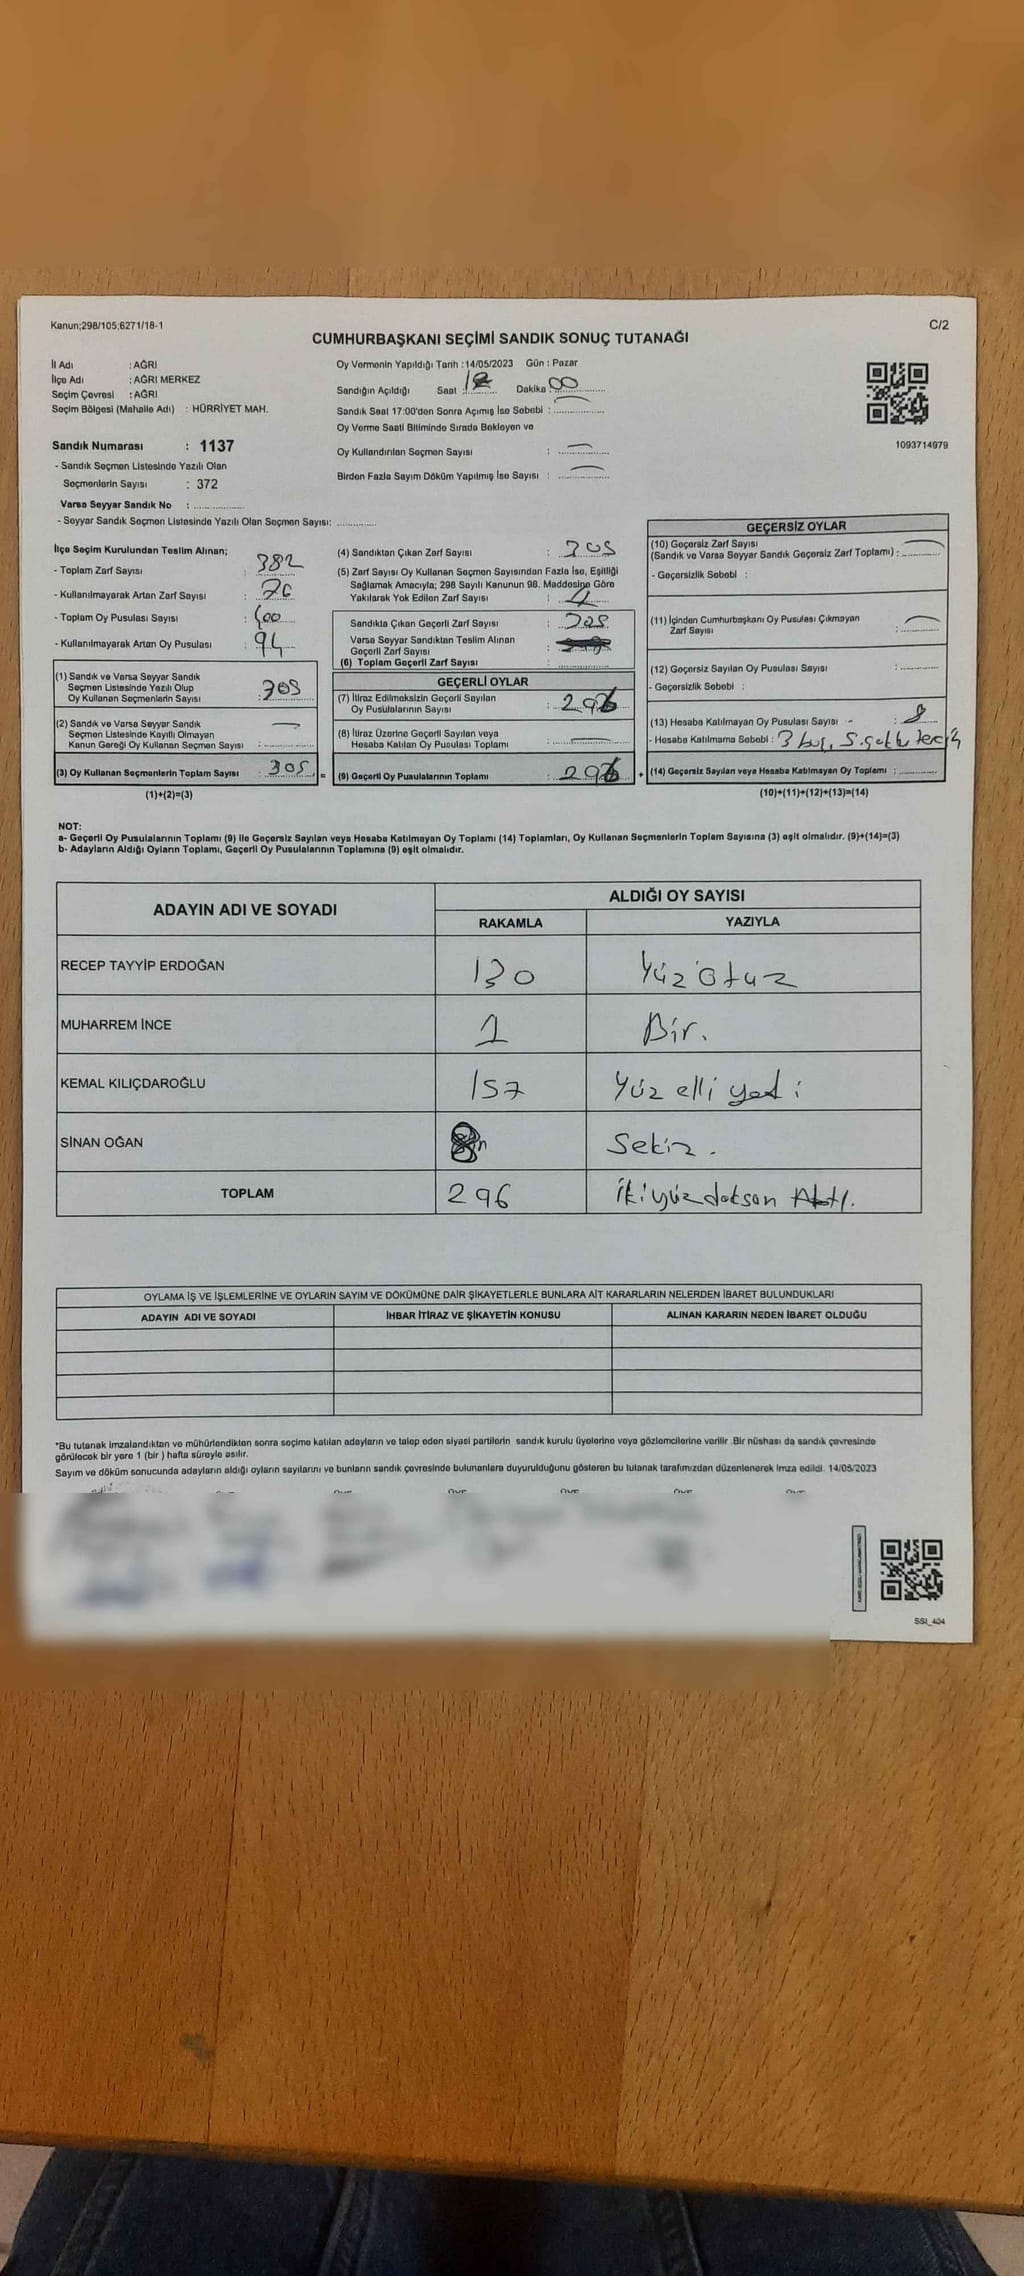 Kanun;298/105;6271/18-1
C/2
CUMHURBAŞKANI SEÇİMİ SANDIK SONUÇ TUTANAĞI
İl Adı : AĞRI
İlçe Adı : AĞRI MERKEZ
Seçim Çevresi : AĞRI
Seçim Bölgesi (Mahalle Adı) : HÜRRİYET MAH.
Sandık Numarası : 1137
- Sandık Seçmen Listesinde Yazılı Olan
Seçmenlerin Sayısı : 372
Varsa Seyyar Sandık No :
- Seyyar Sandık Seçmen Listesinde Yazılı Olan Seçmen Sayısı:
Oy Vermenin Yapıldığı Tarih :14/05/2023 Gün : Pazar
Sandığın Açıldığı Saat : Dakika : 00
Sandık Saat 17:00'den Sonra Açımış İse Sebebi :
Oy Verme Saati Bitiminde Sırada Bekleyen ve
Oy Kullandırılan Seçmen Sayısı :
Birden Fazla Sayım Döküm Yapılmış İse Sayısı :
1093714979
İlçe Seçim Kurulundan Teslim Alınan;
- Toplam Zarf Sayısı : 382
- Kullanılmayarak Artan Zarf Sayısı : 76
- Toplam Oy Pusulası Sayısı : 400
- Kullanılmayarak Artan Oy Pusulası : 94
(1) Sandık ve Varsa Seyyar Sandık
Seçmen Listesinde Yazılı Olup
Oy Kullanan Seçmenlerin Sayısı : 305
(2) Sandık ve Varsa Seyyar Sandık
Seçmen Listesinde Kayıtlı Olmayan
Kanun Gereği Oy Kullanan Seçmen Sayısı :
(3) Oy Kullanan Seçmenlerin Toplam Sayısı : 305 =
(1)+(2)=(3)
(4) Sandıktan Çıkan Zarf Sayısı : 305
(5) Zarf Sayısı Oy Kullanan Seçmen Sayısından Fazla İse, Eşitliği
Sağlamak Amacıyla; 298 Sayılı Kanunun 98. Maddesine Göre
Yakılarak Yok Edilen Zarf Sayısı :
Sandıkta Çıkan Geçerli Zarf Sayısı : 305
Varsa Seyyar Sandıktan Teslim Alınan
Geçerli Zarf Sayısı :
(6) Toplam Geçerli Zarf Sayısı :
GEÇERLİ OYLAR
(7) İtiraz Edilmeksizin Geçerli Sayılan
Oy Pusulalarının Sayısı : 296
(8) İtiraz Üzerine Geçerli Sayılan veya
Hesaba Katılan Oy Pusulası Toplamı :
(9) Geçerli Oy Pusulalarının Toplamı : 296 +
GEÇERSİZ OYLAR
(10) Geçersiz Zarf Sayısı
(Sandık ve Varsa Seyyar Sandık Geçersiz Zarf Toplamı) :
- Geçersizlik Sebebi :
(11) İçinden Cumhurbaşkanı Oy Pusulası Çıkmayan
Zarf Sayısı :
(12) Geçersiz Sayılan Oy Pusulası Sayısı :
- Geçersizlik Sebebi :
(13) Hesaba Katılmayan Oy Pusulası Sayısı - :
- Hesaba Katılmama Sebebi : 3 boş,
(14) Geçersiz Sayılan veya Hesaba Katılmayan Oy Toplamı :
(10)+(11)+(12)+(13)=(14)
NOT:
a- Geçerli Oy Pusulalarının Toplamı (9) ile Geçersiz Sayılan veya Hesaba Katılmayan Oy Toplamı (14) Toplamları, Oy Kullanan Seçmenlerin Toplam Sayısına (3) eşit olmalıdır. (9)+(14)=(3)
b- Adayların Aldığı Oyların Toplamı, Geçerli Oy Pusulalarının Toplamına (9) eşit olmalıdır.
ADAYIN ADI VE SOYADI
ALDIĞI OY SAYISI
RAKAMLA YAZIYLA
RECEP TAYYİP ERDOĞAN 130 Yüz Otuz
MUHARREM İNCE 1 Bir.
KEMAL KILIÇDAROĞLU 157 Yüz elli yedi
SİNAN OĞAN 8 Sekiz.
TOPLAM 296 İkiyüzdoksan Altı.
OYLAMA İŞ VE İŞLEMLERİNE VE OYLARIN SAYIM VE DÖKÜMÜNE DAİR ŞİKAYETLERLE BUNLARA AİT KARARLARIN NELERDEN İBARET BULUNDUKLARI
ADAYIN ADI VE SOYADI İHBAR İTİRAZ VE ŞİKAYETİN KONUSU ALINAN KARARIN NEDEN İBARET OLDUĞU
*Bu tutanak imzalandıktan ve mühürlendikten sonra seçime katılan adayların ve talep eden siyasi partilerin sandık kurulu üyelerine veya gözlemcilerine verilir .Bir nüshası da sandık çevresinde
görülecek bir yere 1 (bir ) hafta süreyle asılır.
Sayım ve döküm sonucunda adayların aldığı oyların sayılarını ve bunların sandık çevresinde bulunanlara duyurulduğunu gösteren bu tutanak tarafımızdan düzenlenerek imza edildi. 14/05/2023
SSI_404